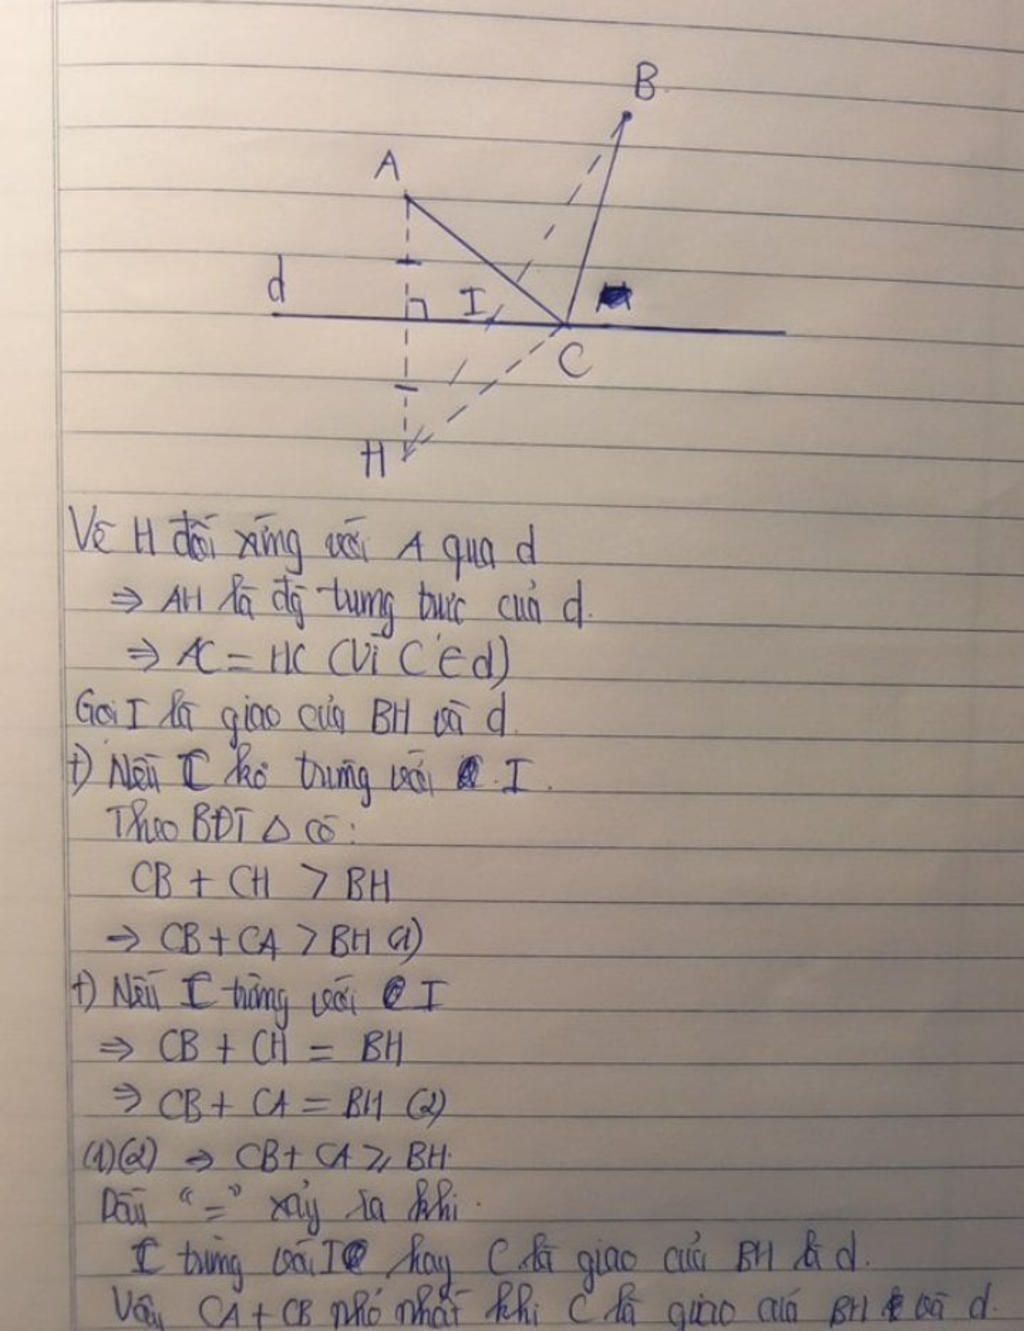 B
A
d
I
C
H
Vẽ H đối xứng với A qua d
⇒ AH là độ tung trực của d.
⇒ AC = HC (Vì C ∈ d)
Gọi I là giao của BH và d.
+) Nếu C ko trùng với I.
Theo BĐT Δ có:
CB + CH > BH
⇒ CB + CA > BH (1)
+) Nếu C trùng với I
⇒ CB + CH = BH
⇒ CB + CA = BH (2)
(1)(2) ⇒ CB + CA ≥ BH
Dấu "=" xảy ra khi
C trùng với I hay C là giao của BH là d.
Vậy CA + CB nhỏ nhất khi C là giao của BH và d.